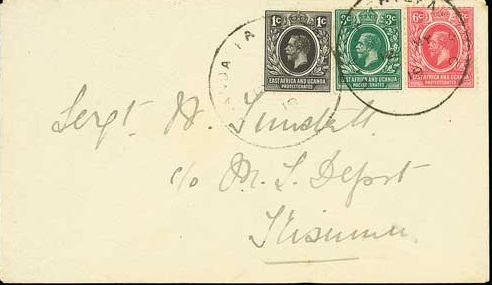 1c 1c
EAST AFRICA AND UGANDA
PROTECTORATES
3c 3c
EAST AFRICA AND UGANDA
PROTECTORATES
6c
EAST AFRICA AND UGANDA
PROTECTORATES
Sergt. H.
c/o M. T. Depot
Kisumu